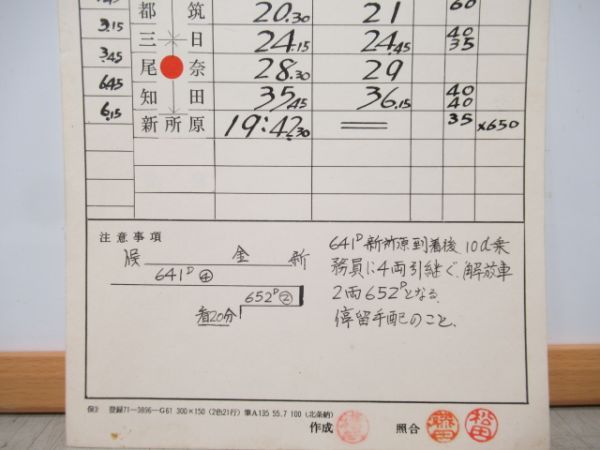 45
都 筑 20.30 21 60
3.15
三 日 24.15 24.45 40 35
3.45
尾 奈 28.30 29
6.45
知 田 35.45 36.15 40 40
6.15
新 所 原 19:42.30 35 ×650
注意事項
金 新
641D ④
652D ②
着20分
641D 新所原到着後 10d乗
務員に4両引継ぐ. 解放車
2両652Dとなる.
停留手配のこと.
保② 登録71-3896-G61 300×150(2色21行) 筆A.135 55.7 100 (北条納)
作成 照合